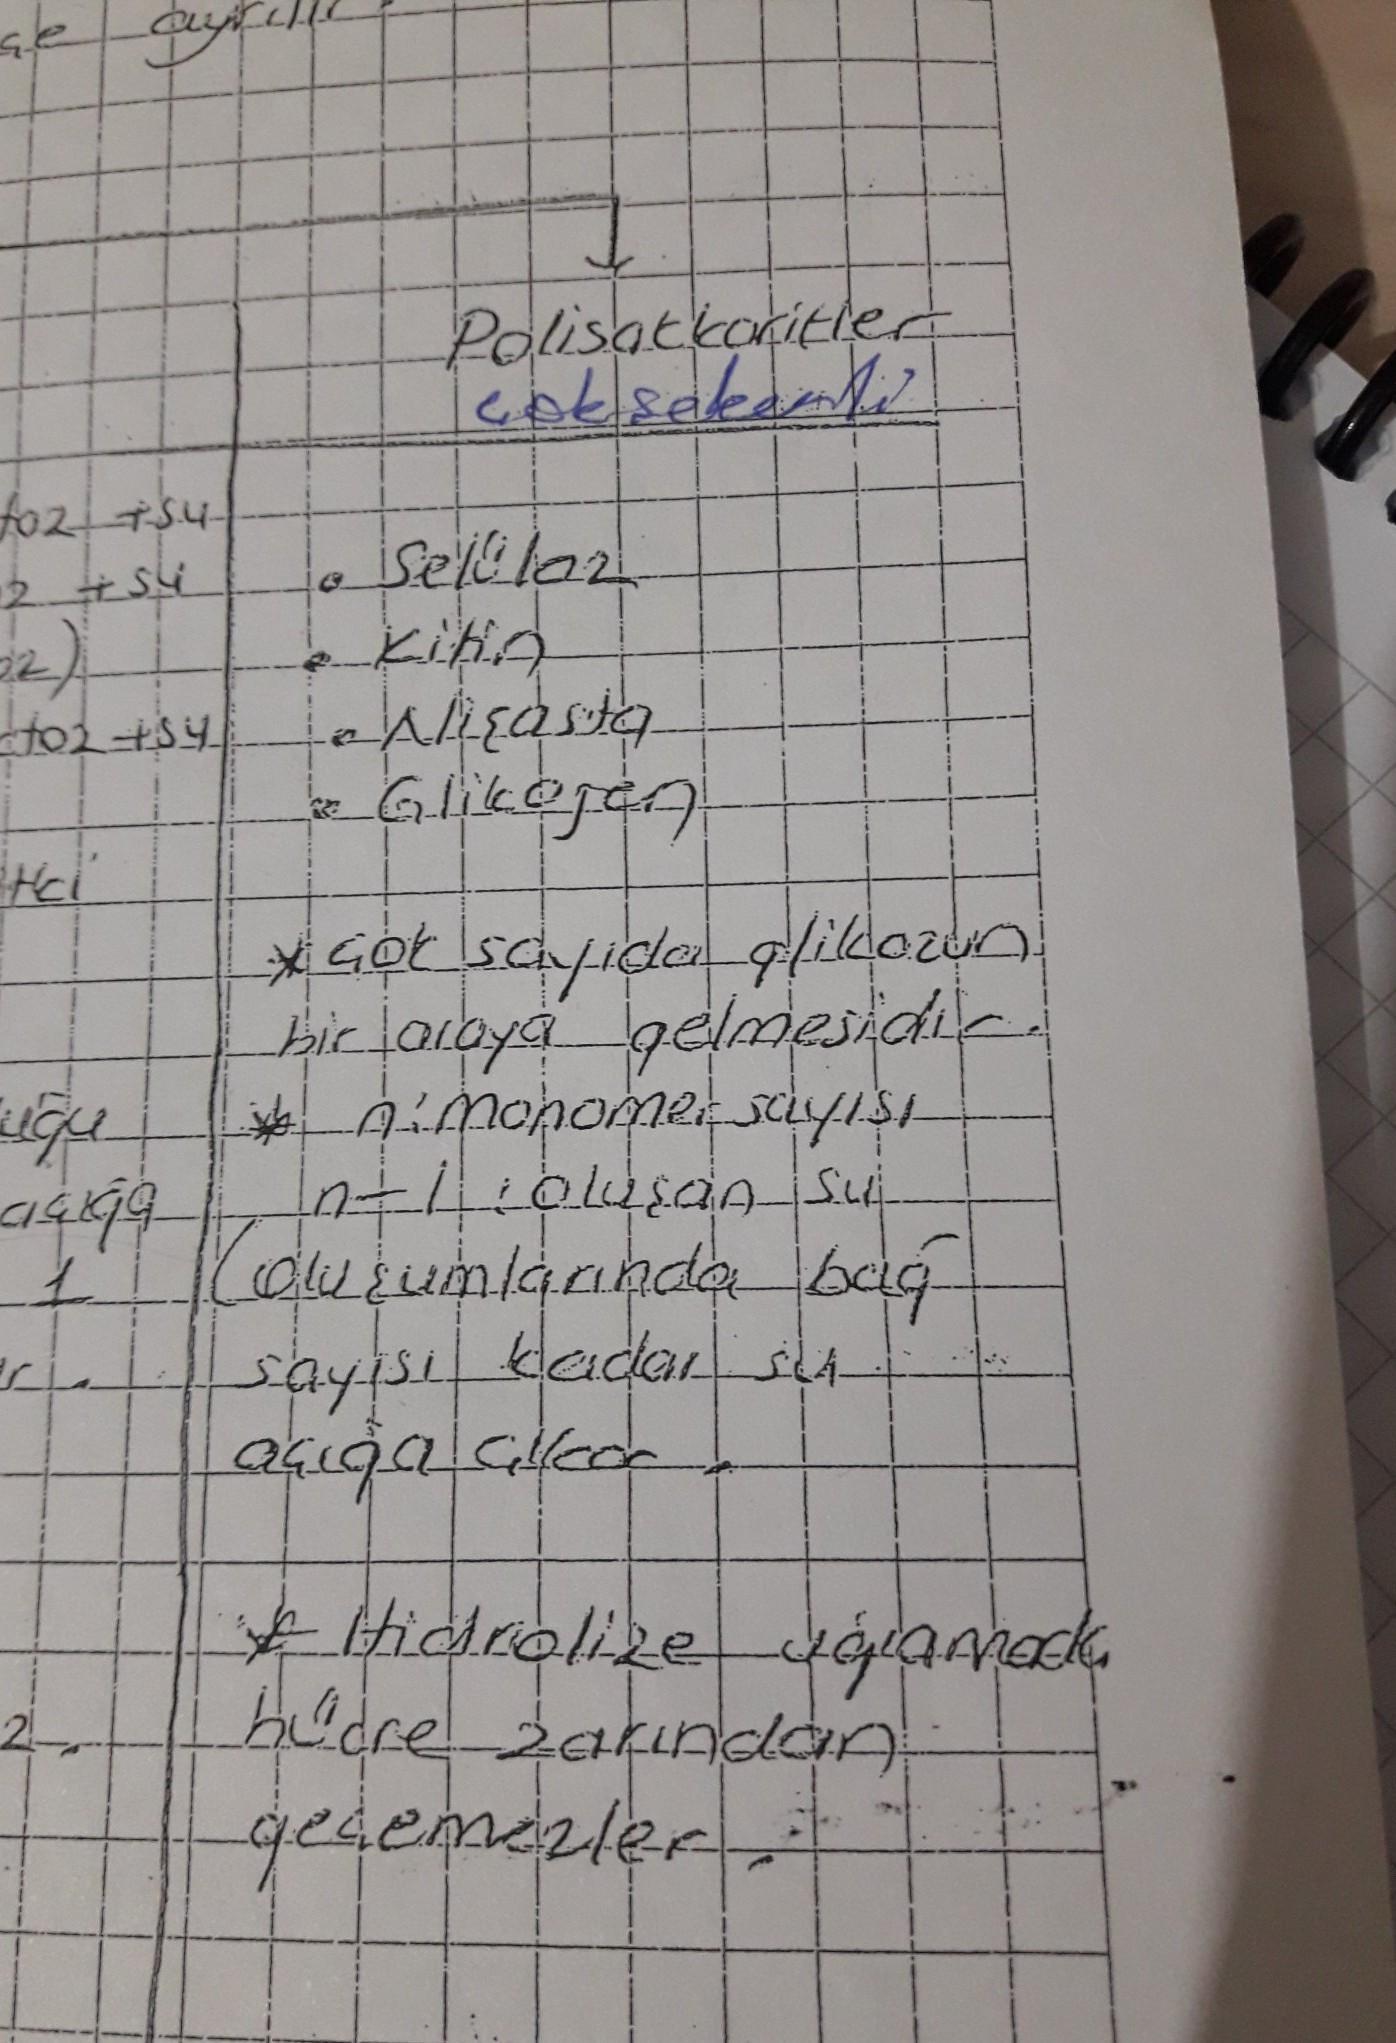 ayrılır.
Polisakkaritler
çok şekerli
toz + su
z + su
oz)
ctoz + su
• Selüloz
• Kitin
• Nişasta
• Glikojen
itki
* çok sayıda glikozun
bir araya gelmesidir.
uğu
* n: monomer sayısı
açığa
n-1 : oluşan su
1
(oluşumlarında bağ
r.
sayısı kadar su
açığa çıkar.
* Hidrolize uğramadı
z.
hücre zarından
geçemezler.